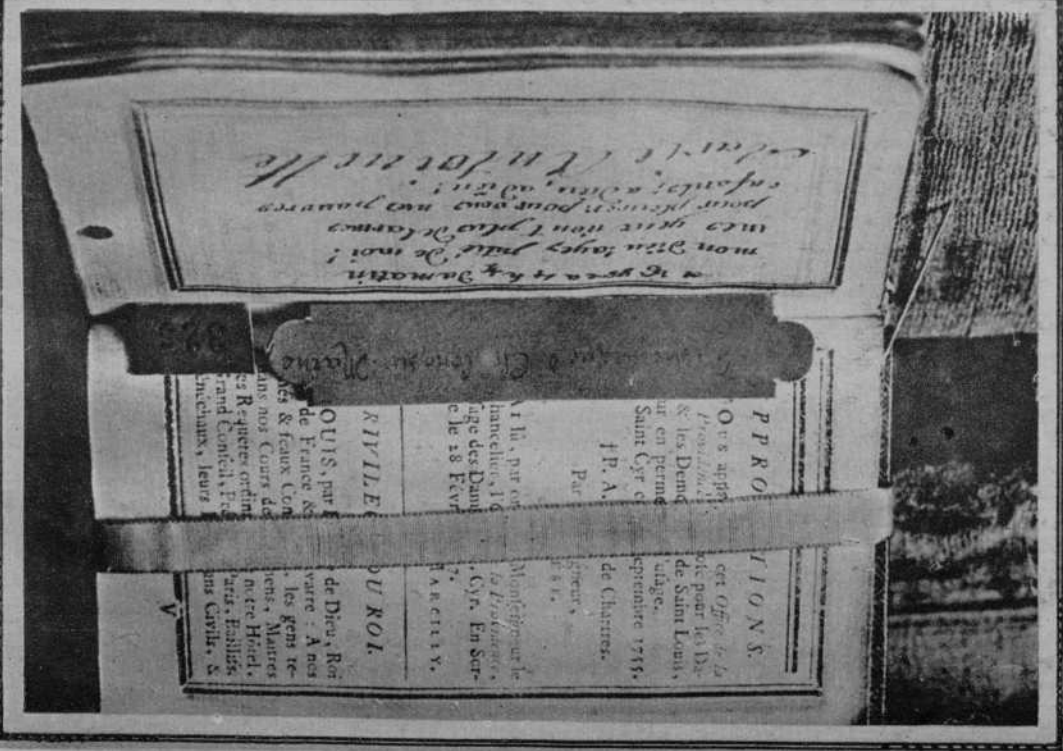 ce 16 8bre a 4 h ½ du matin
mon dieu ! ayez pitié de moi !
mes yeux n'ont plus de larmes
pour pleurer pour vous mes pauvres
enfants ; adieu, adieu !
Marie Antoinette
de Chalons sur Marne
PPRO TIONS.
OUS appr cet Office de la
Providence pour les Da-
& les Demo de Saint Louis,
ur en perme l'usage.
Saint Cyr c eptembre 1755.
† P. A. de Chartres.
Par igneur,
AI lû, par or Monseigneur le
hancelier, l'O la Providence,
age des Dam Cyr. En Sor-
e le 28 Févr 7.
MARCILLY.
RIVILEG DU ROI.
OUIS, par de Dieu, Roi
de France & varre : A nos
més & feaux Con les gens te-
ans nos Cours de mens, Maîtres
es Requêtes ordin notre Hôtel,
Grand Conseil, Pre Paris, Baillifs,
énéchaux, leurs ans Civils, &
V